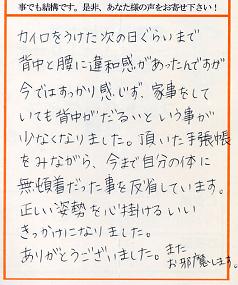 事でも結構です。是非、あなた様の声をお寄せ下さい！
カイロをうけた次の日ぐらいまで
背中と腰に違和感があったんですが
今ではすっかり感じず、家事をして
いても背中がだるいという事が
少なくなりました。頂いた手張帳
をみながら、今まで自分の体に
無頓着だった事を反省しています。
正しい姿勢を心掛けるいい
きっかけになりました。
ありがとうございました。また
お邪魔します。